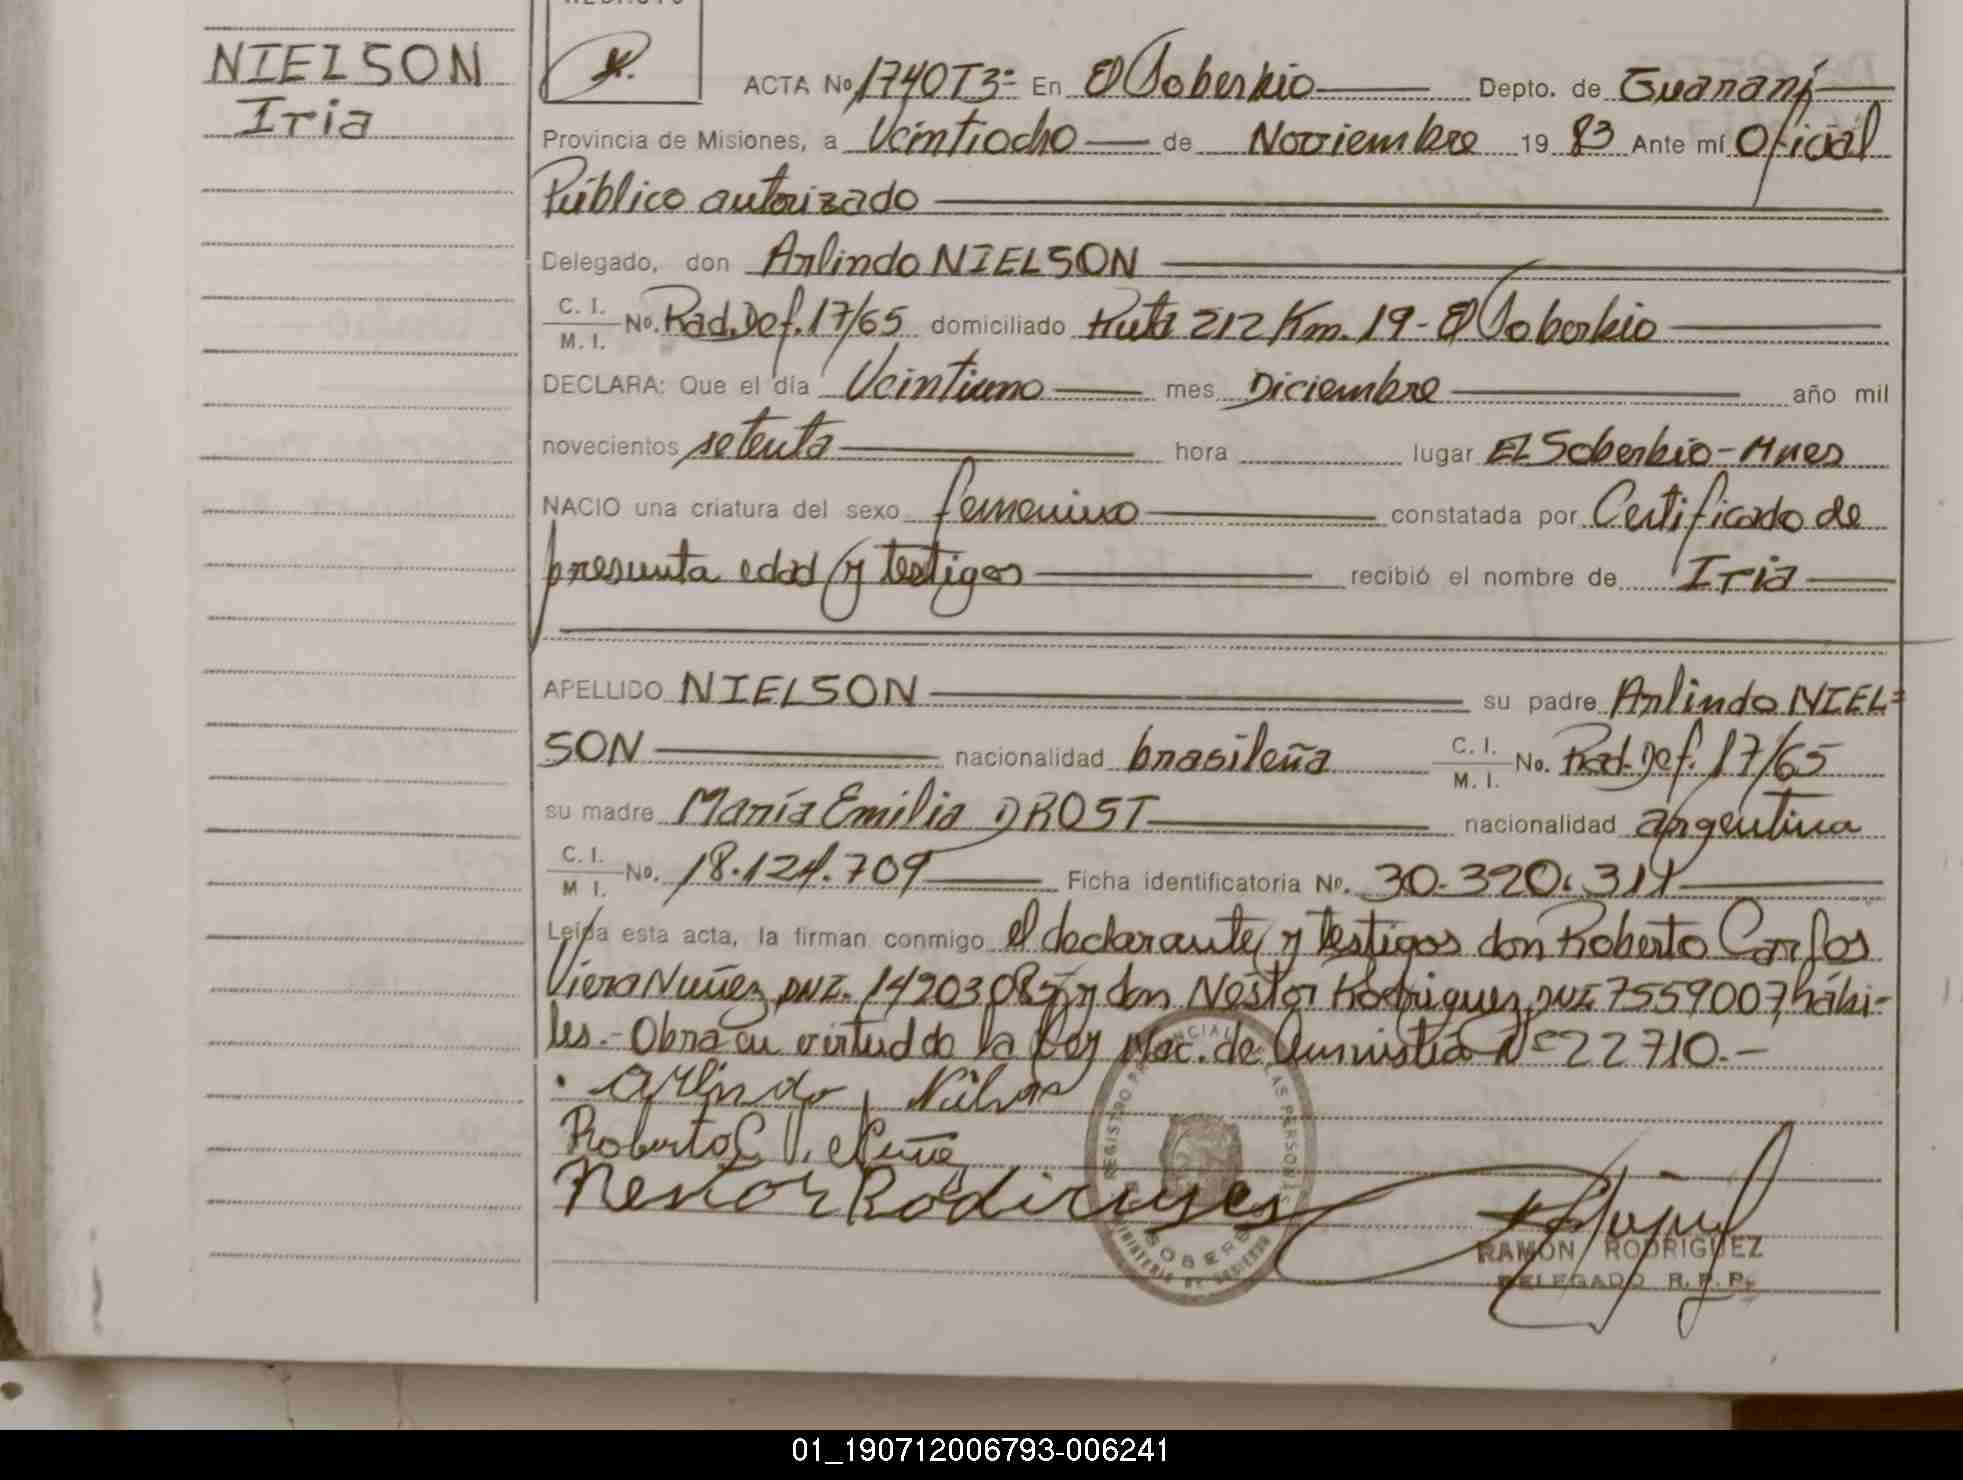 NIELSON
Iria
ACTA No 1740T3= En El Soberbio Depto. de Guaraní
Provincia de Misiones, a Veintiocho de Noviembre 19 83 Ante mí Oficial
Público autorizado
Delegado, don Arlindo NIELSON
C. I. / M. I. No. Rad.Def.17/65 domiciliado Ruta 212 Km. 19 - El Soberbio
DECLARA: Que el día Veintiuno mes Diciembre año mil
novecientos setenta hora lugar El Soberbio - Mnes
NACIO una criatura del sexo femenino constatada por Certificado de
presunta edad y testigos recibió el nombre de Iria
APELLIDO NIELSON su padre Arlindo NIEL=
SON nacionalidad brasileña C. I. / M. I. No. Rad.Def. 17/65
su madre María Emilia DROST nacionalidad argentina
C. I. / M I. No. 18.124.709 Ficha identificatoria No. 30.320.311
Leída esta acta, la firman conmigo el declarante y testigos don Roberto Carlos
Viera Nuñez DNI. 14203085 y don Néstor Rodriguez, DNI 7559007, hábi-
les.- Obra en virtud de la Ley Nac. de Amnistía Nº 22710.-
Arlindo
Roberto C V.
Nestor
REGISTRO PROVINCIAL DE LAS PERSONAS
MINISTERIO DE GOBIERNO
RAMON RODRIGUEZ
DELEGADO R. P. P.
01_190712006793-006241